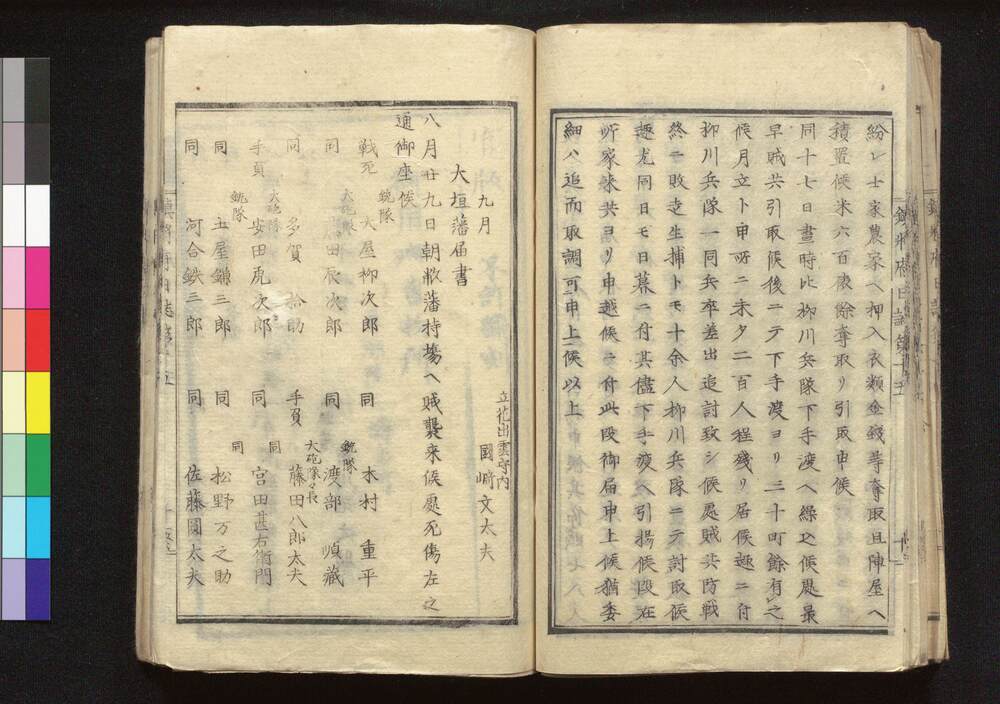 紛レ士家農家ヘ押入衣類金銭等奪取且陣屋ヘ
積置候米六百俵餘奪取リ引取申候
同十七日晝時比柳川兵隊下手渡ヘ繰込候處最
早賊共引取候後ニテ下手渡ヨリ三十町餘有之
候月立ト申所ニ未タ二百人程殘リ居候趣ニ付
柳川兵隊一同兵卒差出追討致シ候處賊共防戰
終ニ敗走生捕トモ十余人柳川兵隊ニテ討取候
趣尤同日モ日暮ニ付其儘下手渡ヘ引揚候段在
所家來共ヨリ申越候ニ付此段御届申上候猶委
細ハ追而取調可申上候以上
九月
立花出雲守内
國﨑文太夫
大垣藩届書
八月廿九日朝敝藩持場ヘ賊襲來候處死傷左之
通御座候
戰死 銃隊 大屋柳次郎 同 木村重平
同 大砲隊 田辰次郎 同 銃隊 渡部順藏
同 多賀捨助 手負 大砲隊々長 藤田八郎太夫
手負 大砲隊 安田虎次郎 同 同 宮田甚右衛門
同 銃隊 土屋鎌三郎 同 同 松野万之助
同 河合鉄三郎 同 佐藤圓太夫
鎮將府日誌第十五